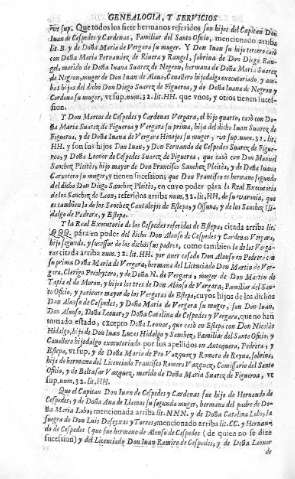 GENEALOGIA, Y SERVICIOS
ve sup. Que todos los siete hermanos referidos son hijos del Capitan Don
Iuan de Cespedes y Cardenas, Familiar del Santo Oficio, mencionado arriba
lit. B. y de Doña Maria de Vergara su muger. Y Don Iuan su hijo tercero casò
con Doña Maria Fernandez de Rivera y Rangel, sobrina de Don Diego Ran-
gel, marido de Doña Iuana Suarez de Negron, hermana de Doña Maria Suarez
de Negron, muger de Don Iuan de
bos hijos del dicho Don Diego Suarez de Figueroa, y de Doña Iuana de Negron y
Cardenas su muger, ve sup. num. 32. lit. HH. que vnos, y otros tienen sucef-
sion.
Y Don Marcos de Cespedes y Cardenas Vergara, el hijo quarto, casò con Do-
ña Maria Suarez de Figueroa y Vergara su prima, hija del dicho Iuan Suarez de
Figueroa, y de Doña Iuana de Vergara Hinojosa su muger, ve sup. num. 32. lit.
HH. y son sus hijos Don Iuan, y Don Fernando de Cespedes Suarez de Figue-
roa, y Doña Leonor de Cespedes Suarez de Figueroa, que casò con Don Manuel
Sanchez Pleitès, hijo mayor de Don Francisco Sanchez Pleitès, y de Doña Iuana
su muger, y tienen sucession; que Don Francisco es hermano segundo
del dicho Don Diego Sanchez Pleitès, en cuyo poder pàra la Real Executoria
de los Sanchez de Leon, referidos arriba num. 32. lit. HH. de su varonia, que
es tambien la de los Sanchez Cantalejos de Estepa, y Ossuna, y de los Sanchez Hi-
dalgo de Pedrera, y Estepa.
Y la Real Executoria de los Cespedes referidos de Estepa, citada arriba lit.
QQQ. pàra en poder del dicho Don Alonso de Cespedes y Cardenas Vergara,
hijo segundo, y sucessor de los dichos sus padres, como tambien la de los Verga-
ras citada arriba num. 32. lit. HH. por aver casado Don Alonso en Pedrera con
su prima Doña Maria de Vergara, hermana del Licenciado Don Martin de Ver-
gara, Clerigo Presbytero, y de Doña N. de Vergara, muger de Don Martin de
Tapia el de Moron, y hijos los tres de Don Alonso de Vergara, Familiar del Santo
Oficio, y pariente mayor de los Vergaras de Estepa, cuyos hijos de los dichos
Don Alonso de Cespedes, y Doña Maria de Vergara su muger, son Don Iuan,
Don Alonso, Doña Leonor, y Doña Catalina de Cespedes y Vergara, que no hàn
tomado estado, excepto Doña Leonor, que casò en Estepa con Don Nicolàs
Hidalgo, hijo de Don Iuan Lucas Hidalgo y Sanchez, Familiar del Santo Oficio, y
Cavallero hijodalgo executoriado por sus apellidos en Antequera, Pedrera, y
Estepa, ve sup. y de Doña Maria de Pro Vazquez y Romero de Reyna, sobrina,
hija de hermana del Licenciado Francisco Romero Vazquez, Comissario del Santo
Oficio, y de Baltasar Vazquez, marido de Doña Maria Suarez de Figueroa, ve
sup. num. 32. lit. HH.
Que el Capitan Don Iuan de Cespedes y Cardenas fue hijo de Hernando de
Cespedes, y de Doña Ana de Llanos su segunda muger, hermana del padre de Do-
ña Maria Lobo, mencionada arriba lit. NNN. y de Doña Catalina Lobo, la
suegra de Don Luis Desquas y Torres, mencionado arriba lit. CC. y Hernan-
do de Cespedes (que fue hermano de Alonso de Cespedes (de quien no se dize
sucession) y del Licenciado Don Iuan Ramirez de Cespedes, y de Doña Leonor
de